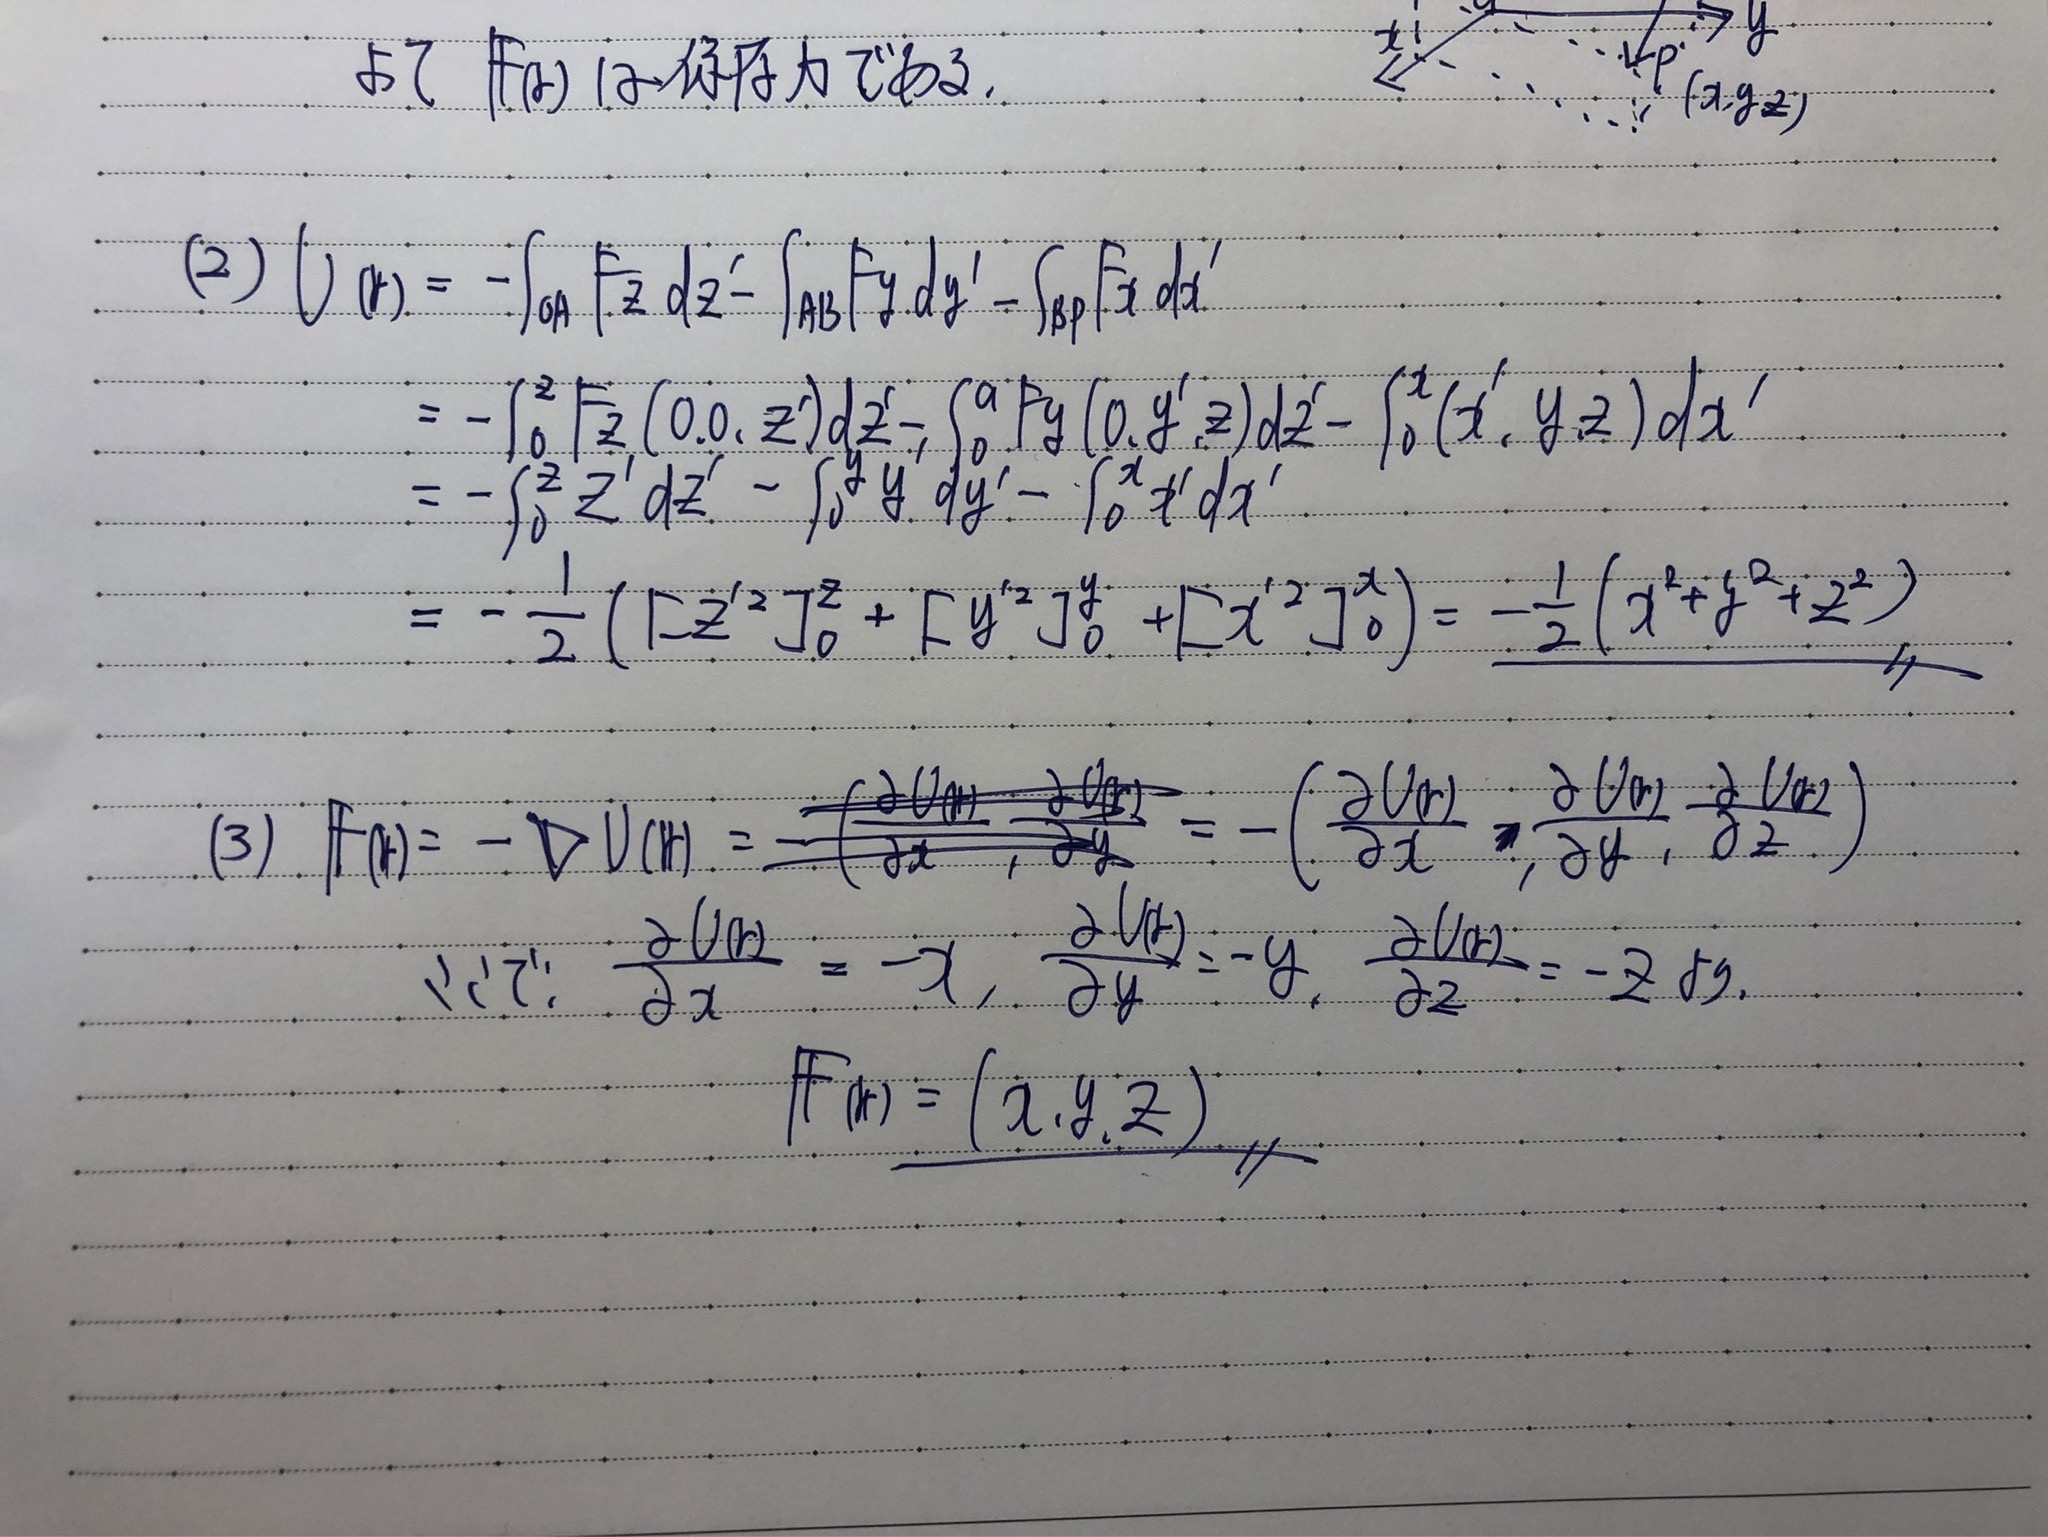 よって F(r) は保存力である.
x y P (x,y,z)
(2) U(r) = -∫_OA Fz dz' - ∫_AB Fy dy' - ∫_BP Fx dx'
= -∫_0^z Fz (0.0. z') dz' - ∫_0^a Fy (0. y'. z) dz' - ∫_0^x (x'. y.z) dx'
= -∫_0^z z' dz' - ∫_0^y y' dy' - ∫_0^x x' dx'
= -1/2 ([z'^2]_0^z + [y'^2]_0^y + [x'^2]_0^x) = -1/2 (x^2+y^2+z^2)
(3) F(r) = -∇U(r) = -(∂U(r)/∂x, ∂U(r)/∂y = -(∂U(r)/∂x, ∂U(r)/∂y, ∂U(r)/∂z)
ここで, ∂U(r)/∂x = -x, ∂U(r)/∂y = -y, ∂U(r)/∂z = -z より,
F(r) = (x.y.z)